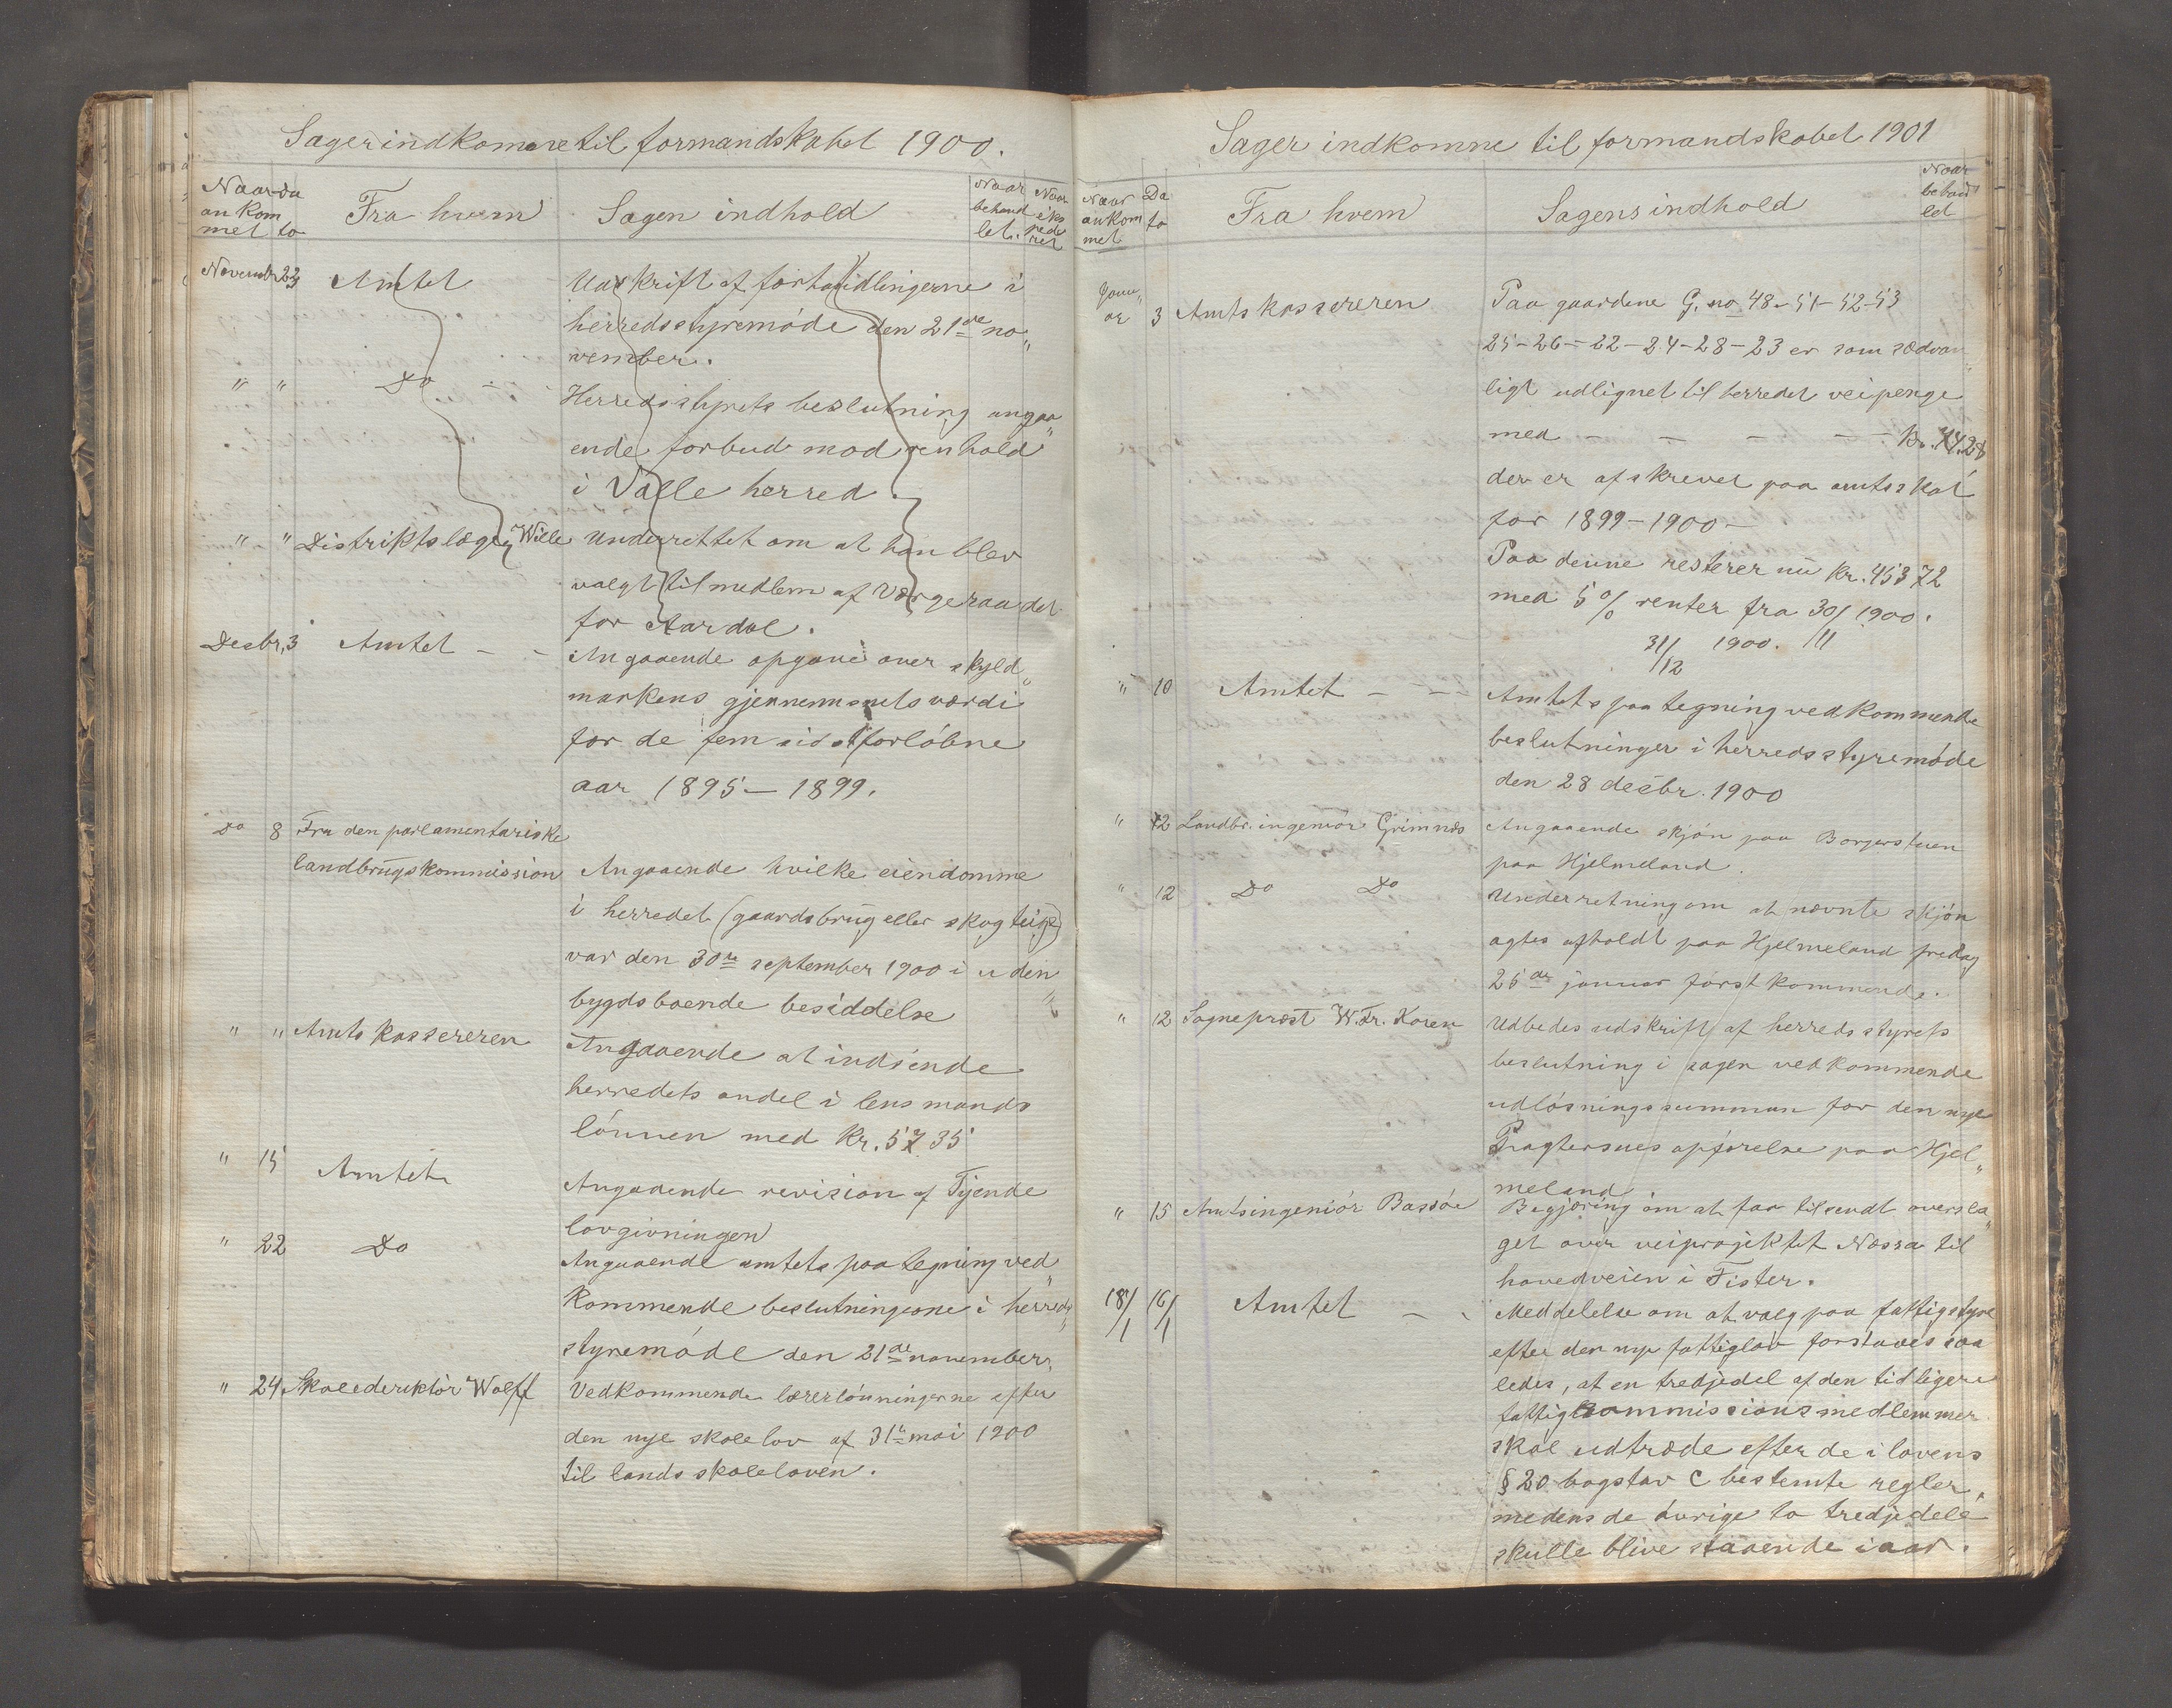 Sager indkomne til formandskabet 1900.
Naar ankommet
Dato
Fra hvem
Sagen indhold
Naar behandlet.
Naar ekspederet
Novembr 23 Amtet Udskrift af forhandlingerne i
herredsstyremöde den 21de no„
vember.
" " Do - Herredsstyrets beslutning angaa„
ende forbud mod renhold
i Valle herred.
" " Distriktslæge Wille Underrettet om at han blev
valgt til medlem af Værgeraadet
for Aardal.
Desbr, 3 Amtet - - Angaaende opgave over skyld„
markens gjennemsnitsværdi
for de fem sidst forlöbne
aar 1895 – 1899.
Do 8 Fra den parlamentariske
landbrugskommission Angaaende hvilke eiendomme
i herredet (gaardsbrug eller skogteige)
var den 30te september 1900 i uden„
bygdsboende besiddelse
" " Amtskassereren Angaaende at indsende
herredets andel i lensmands
lönnen med Kr. 57.35
" 15 Amtet Angaaende revision af Tjende
lovgivningen
" 22 Do Angaaende amtets paategning ved„
kommende beslutningerne i herreds„
styremöde den 21de november.
" 24 Skoledirektör Wolff Vedkommende lærerlönningerne efter
den nye skolelov af 31te mai 1900
til landsskoleloven.
Sager indkomne til formandskabet 1901
Naar ankommet
Dato
Fra hvem
Sagens indhold
Naar behandlet
Janu„
ar 3 Amtskassereren Paa gaardene G. no 48-51-52-53
25-26-22-24-28-23 er som sædvan„
ligt udlignet til herredet veipenge
med - - - - Kr. 14.28
der er afskrevet paa amtsskat
for 1899-1900 -
Paa denne resterer nu Kr. 453 72
med 5 % renter fra 30/11 1900.
31/12 1900.
" 10 Amtet - - - Amtets paategning vedkommende
beslutninger i herredsstyremöde
den 28 desbr. 1900
" 12 Landbr. ingeniör Grimnæs Angaaende skjön paa Borgerstuen
paa Hjelmeland.
" 12 Do Do Underretning om at nævnte skjön
agtes afholdt paa Hjelmeland fredag
25de januar först kommende.
" 12 Sogneprest W. Fr. Koren Udbedes udskrift af herredsstyrets
beslutning i sagen vedkommende
udlösningssumman for den nye
opförelse paa Hjel„
meland
" 15 Amtsingeniör Bassöe Begjæring om at faa tilsendt oversla„
get over veiprojektet Næssa til
hovedveien i Fister.
18/1 16/1 Amtet - - Meddelelse om at valg paa fattigstyre
efter den nye fattiglov forstaaes saa
ledes, at en tredjedel af den tidligere
fattigkommissions medlemmer
skal udtræde efter de i lovens
§ 20 bogstav C bestemte regler,
medens de övrige to tredjedele
skulle blive staaende i aar.